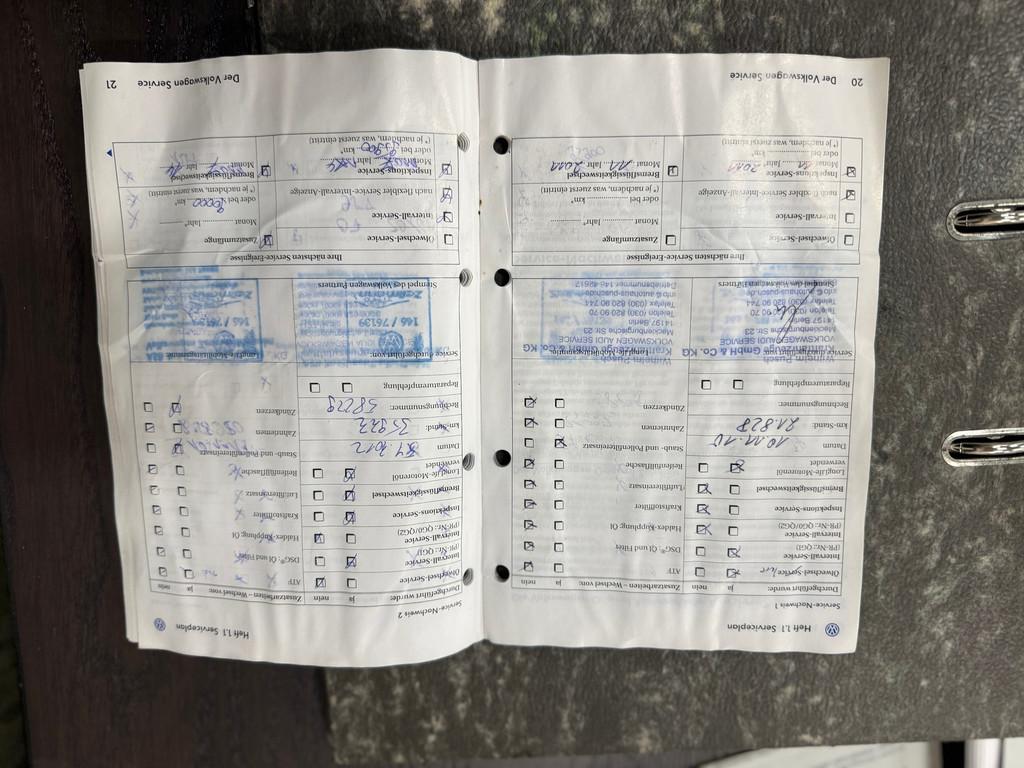 Heft 1.1 Serviceplan
Service-Nachweis 1
Durchgeführt wurde: ja nein
Ölwechsel-Service/
Intervall-Service
(PR-Nr.: QG1)
Intervall-Service
(PR-Nr.: QG0/QG2)
Inspektions-Service
Bremsflüssigkeitswechsel
LongLife-Motorenöl
verwendet
Datum 10.11.10
km-Stand: 21.828
Rechnungsnummer:
Reparaturempfehlung
Zusatzarbeiten – Wechsel von: ja nein
ATF
DSG® Öl und Filter
Haldex-Kupplung Öl
Kraftstofffilter
Luftfiltereinsatz
Reifenfüllflasche
Staub- und Pollenfiltereinsatz
Zahnriemen
Zündkerzen
Service durchgeführt von:
Stempel des Volkswagen Partners
Wilhelm Pusch
Kraftfahrzeug GmbH & Co. KG
VOLKSWAGEN AUDI SERVICE
Mecklenburgische Str. 23
14197 Berlin
Telefon (030) 820 90 70
Telefax (030) 820 90 744
LongLife-Mobilitätsgarantie
Kraftfahrzeug GmbH & Co. KG
VOLKSWAGEN AUDI SERVICE
Mecklenburgische Str. 23
14197 Berlin
Telefon (030) 820 90 70
Telefax (030) 820 90 744
Ihre nächsten Service-Ereignisse
Ölwechsel-Service
Intervall-Service
nach flexibler Service-Intervall-Anzeige
Inspektions-Service
Monat 11 Jahr 2011
oder bei km*
(*) je nachdem, was zuerst eintritt)
Zusatzumfänge
Monat Jahr*
oder bei km*
(*) je nachdem, was zuerst eintritt)
Bremsflüssigkeitswechsel
Monat 11 Jahr 2011
20 Der Volkswagen Service
Heft 1.1 Serviceplan
Service-Nachweis 2
Durchgeführt wurde: ja nein
Ölwechsel-Service
Intervall-Service
(PR-Nr.: QG1)
Intervall-Service
(PR-Nr.: QG0/QG2)
Inspektions-Service
Bremsflüssigkeitswechsel
LongLife-Motorenöl
verwendet
Datum
km-Stand: 35923
Rechnungsnummer: 38229
Reparaturempfehlung
Zusatzarbeiten – Wechsel von: ja nein
ATF
DSG® Öl und Filter
Haldex-Kupplung Öl
Kraftstofffilter
Luftfiltereinsatz
Reifenfüllflasche
Staub- und Pollenfiltereinsatz
Zahnriemen
Zündkerzen
Service durchgeführt von:
Stempel des Volkswagen Partners
146 / 76139
LongLife-Mobilitätsgarantie
146 / 76139
Ihre nächsten Service-Ereignisse
Ölwechsel-Service
Intervall-Service
nach flexibler Service-Intervall-Anzeige
Inspektions-Service
Monat Jahr
oder bei km*
(*) je nachdem, was zuerst eintritt)
Zusatzumfänge
Monat Jahr*
oder bei 90000 km*
(*) je nachdem, was zuerst eintritt)
Bremsflüssigkeitswechsel
Monat Jahr 14
Der Volkswagen Service 21